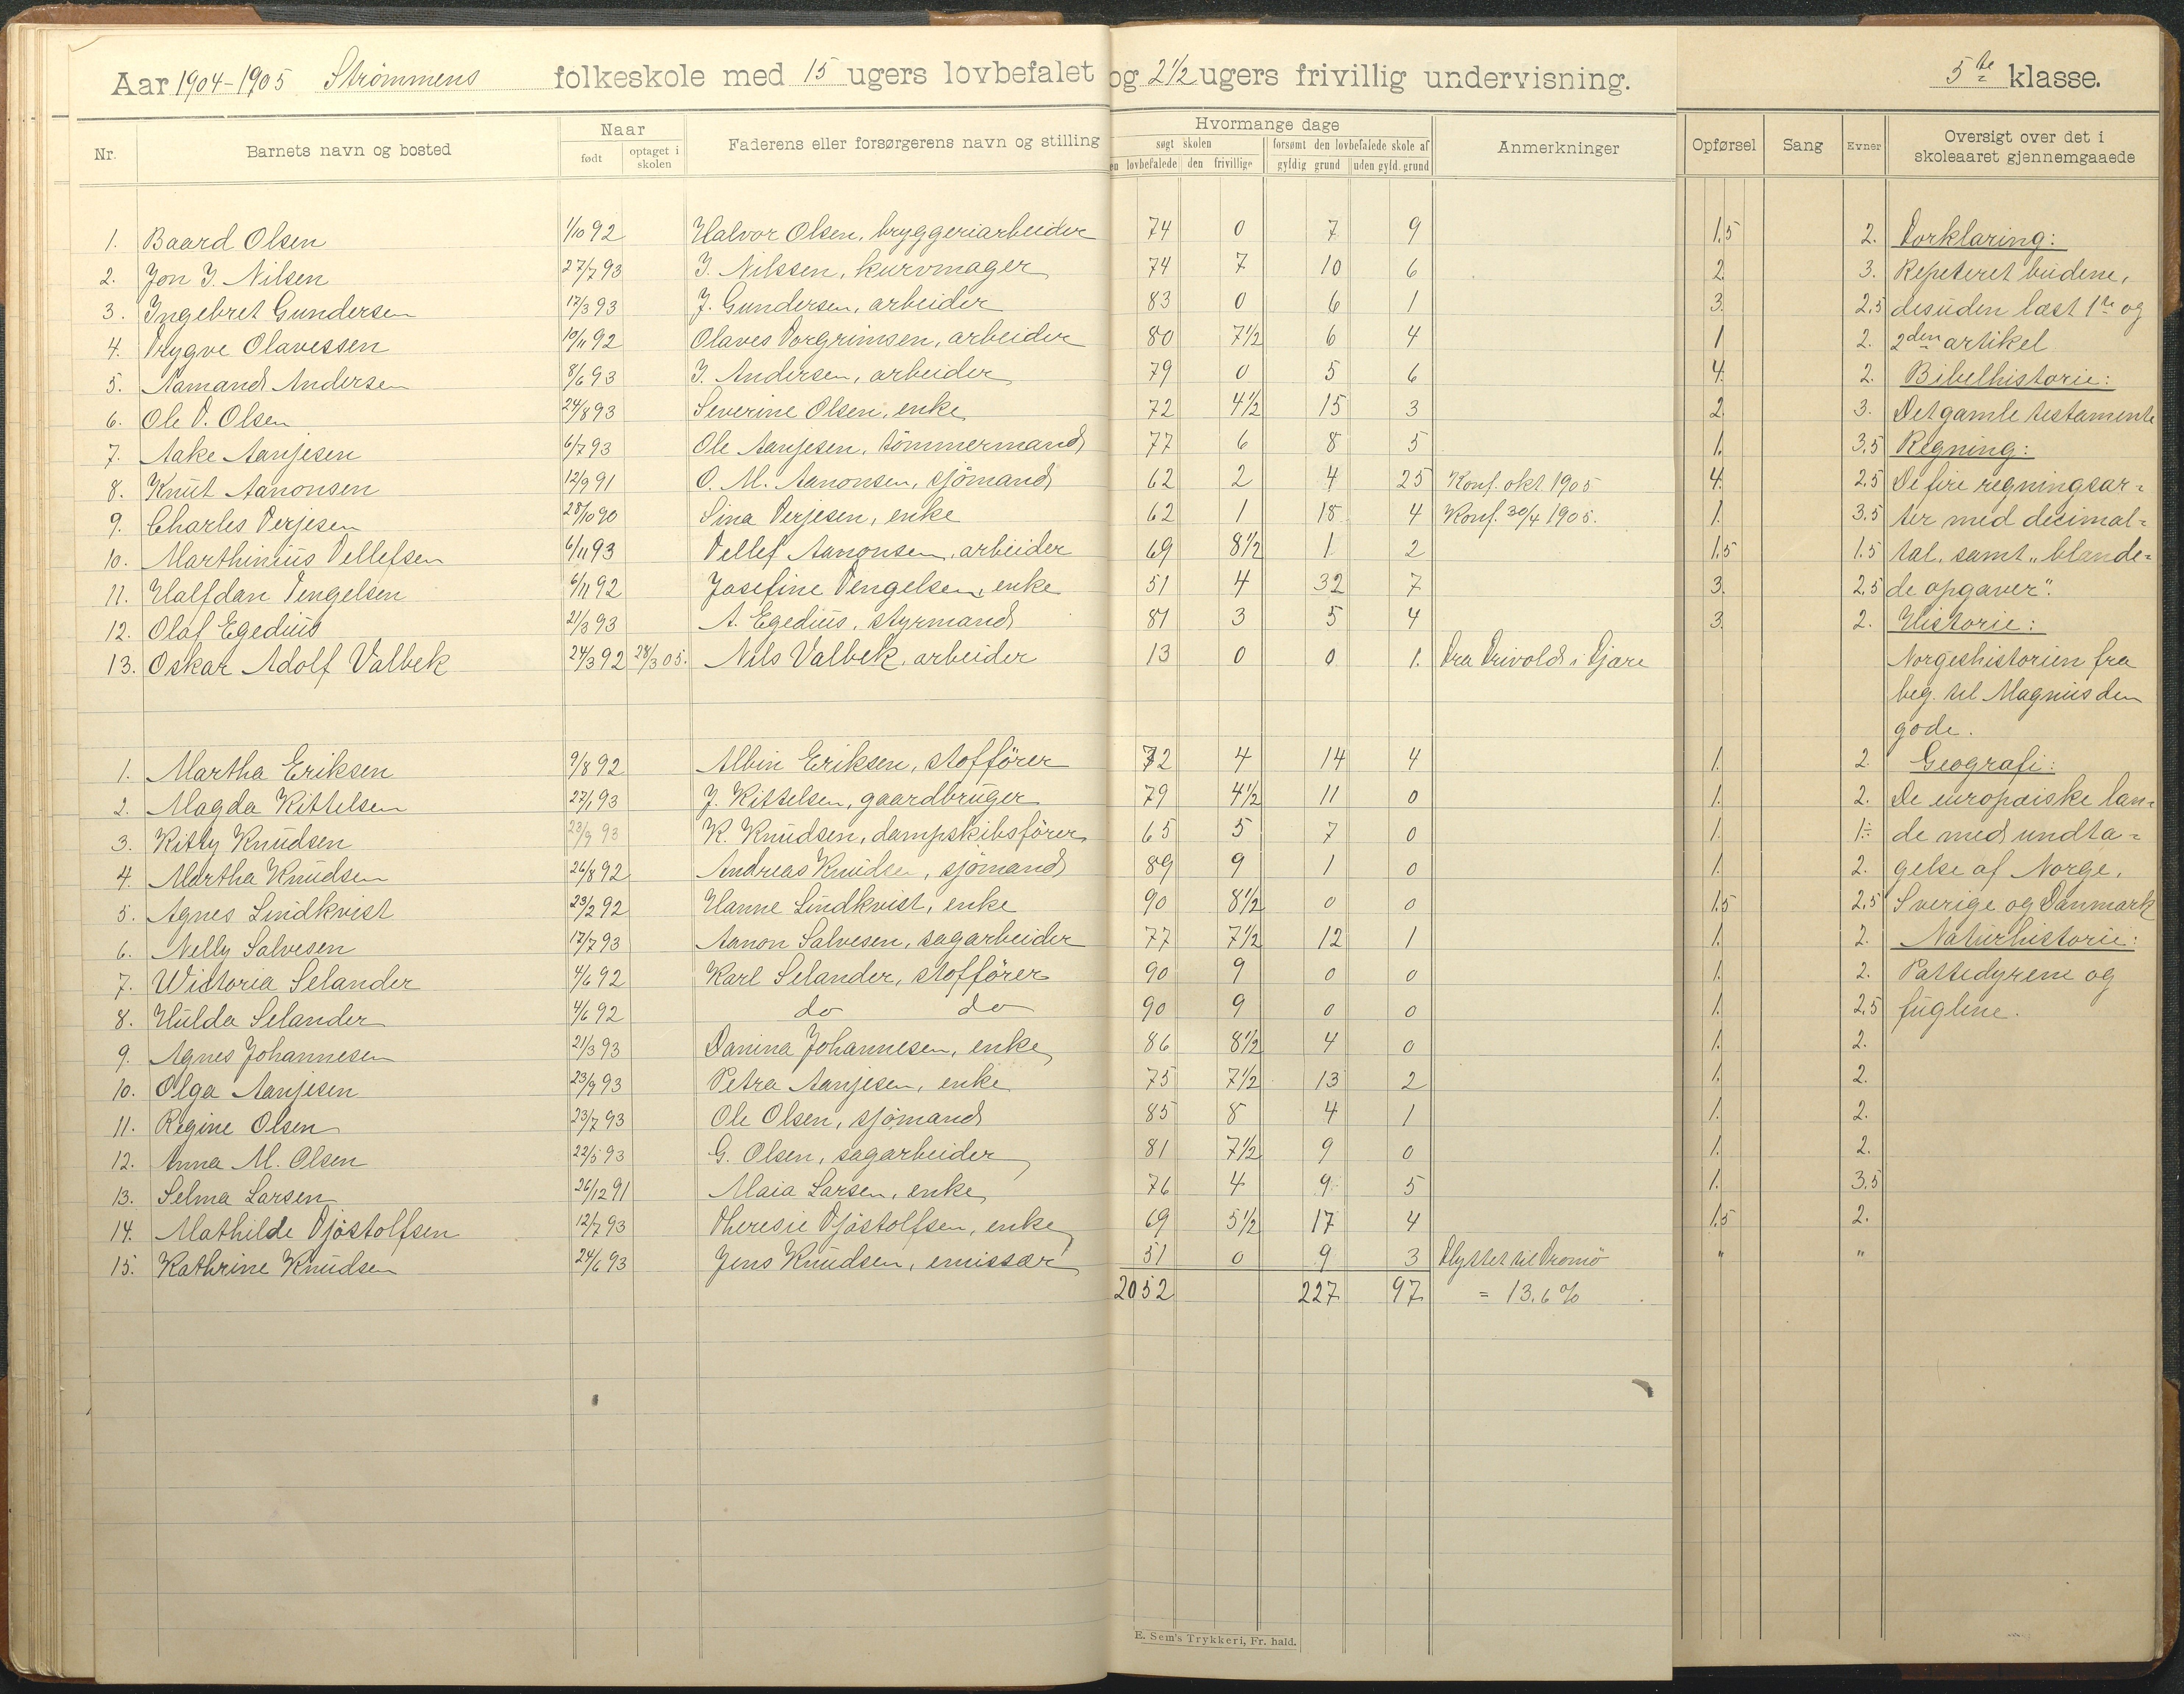 Aar 1904-1905 Strømmens folkeskole med 15 ugers lovbefalet og 2 1/2 ugers frivillig undervisning. 5te klasse.
Nr. Barnets navn og bosted Naar født optaget i skolen Faderens eller forsørgerens navn og stilling Hvormange dage søgt skolen den lovbefalede den frivillige forsømt den lovbefalede skole af gyldig grund uden gyld. grund Anmerkninger Opførsel Sang Evner Oversigt over det i skoleaaret gjennemgaaede
1. Baard Olsen 1/10 92 Halvor Olsen, bryggeriarbeider 74 0 7 9 1.5 2. Forklaring:
2. Jon J. Nilsen 27/7 93 J. Nilssen, kurvmager 74 7 10 6 2. 3. Repeteret budene,
3. Ingebret Gundersen 17/3 93 J. Gundersen, arbeider 83 0 6 1 3. 2,5 desuden læst 1ste og
4. Trygve Olavessen 19/11 92 Olaves Torgrimsen, arbeider 80 7 1/2 6 4 1 2. 2den artikel
5. Aamand Andersen 8/6 93 J. Andersen, arbeider 79 0 5 6 4. 2. Bibelhistorie:
6. Ole T. Olsen 24/8 93 Severine Olsen, enke 72 4 1/2 15 3 2 3. Det gamle testamente
7. Aake Aanjesen 6/7 93 Ole Aanjesen, tömmermand 77 6 8 5 1. 3,5 Regning:
8. Knut Aanonsen 12/9 91 O. M. Aanonsen, sjömand 62 2 4 25 Konf. okt. 1905 4. 2,5 De fire regningsar-
9. Charles Terjesen 28/10 90 Sina Terjesen, enke 62 1 18 4 Konf. 30/4 1905. 1. 3.5 ter med decimal-
10. Marthinius Tellefsen 6/11 93 Tellef Aanonsen, arbeider 69 8 1/2 1 2 1.5 1.5 tal, samt "blande-
11. Halfdan Tengelsen 6/11 92 Josefine Tengelsen, enke 51 4 32 7 3. 2,5 de opgaver".
12. Olaf Egedius 21/3 93 A. Egedius, styrmand 81 3 5 4 3. 2. Historie:
13. Oskar Adolf Valbek 24/3 92 28/3 05. Nils Valbek, arbeider 13 0 0 1. Fra Trivold i Tjøre Norgeshistorien fra
beg. til Magnus den
gode.
1. Martha Eriksen 9/8 92 Albin Eriksen, stofförer 72 4 14 4 1. 2. Geografi:
2. Magda Kittelsen 27/1 93 J. Kittelsen, gaardbruger 79 4 1/2 11 0 1. 2. De europæiske lan-
3. Kitty Knudsen 23/9 93 K. Knudsen, dampskibsförer 65 5 7 0 1. 1÷ de med undta-
4. Martha Knudsen 26/8 92 Andreas Knudsen, sjömand 89 9 1 0 1. 2. gelse af Norge,
5. Agnes Lindkvist 23/2 92 Hanne Lindkvist, enke 90 8 1/2 0 0 1.5 2,5 Sverige og Danmark
6. Nelly Salvesen 17/7 93 Aanon Salvesen, sagarbeider 77 7 1/2 12 1 1. 2. Naturhistorie:
7. Wictoria Selander 4/6 92 Karl Selander, stofförer 90 9 0 0 1. 2. Pattedyrene og
8. Hulda Selander 4/6 92 do do 90 9 0 0 1. 2,5 fuglene.
9. Agnes Johannesen 21/3 93 Danina Johannesen, enke 86 8 1/2 4 0 1. 2.
10. Olga Aanjesen 23/9 93 Petra Aanjesen, enke 75 7 1/2 13 2 1. 2.
11. Regine Olsen 23/7 93 Ole Olsen, sjömand 85 8 4 1 1. 2.
12. Anna M. Olsen 22/5 93 G. Olsen, sagarbeider 81 7 1/2 9 0 1. 2.
13. Selma Larsen 26/12 91 Maia Larsen, enke 76 4 9 5 1. 3.5
14. Mathilde Tjöstolfsen 12/7 93 Theresie Tjöstolfsen, enke 69 5 1/2 17 4 1.5 2.
15. Kathrine Knudsen 24/6 93 Jens Knudsen, emissær 51 0 9 3 Flyttet til Tromö " "
2052 227 97 = 13.6 %
E. Sem's Trykkeri, Fr. hald.